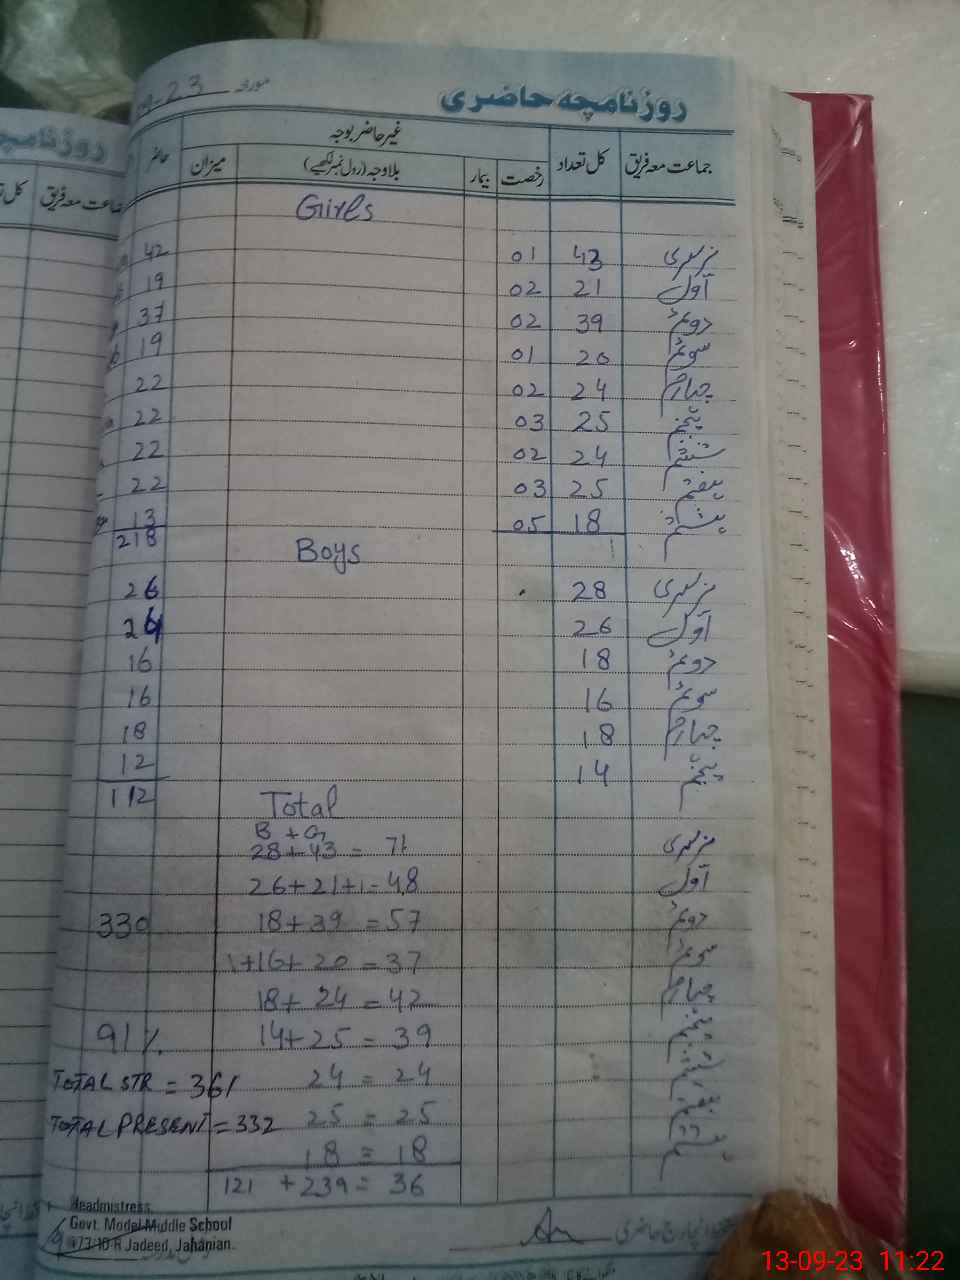 روزنامچہ حاضری
مورخہ 23
جماعت معہ فریق کل تعداد غیر حاضر بوجہ حاضر
رخصت بیمار بلاوجہ (رول نمبر لکھیے) میزان
Girls
نرسری 43 01 42
اول 21 02 19
دوئم 39 02 37
سوئم 20 01 19
چہارم 24 02 22
پنجم 25 03 22
ششم 24 02 22
ہفتم 25 03 22
ہشتم 18 05 13
218
Boys
نرسری 28 26
اول 26
دوئم 18 16
سوئم 16 16
چہارم 18 18
پنجم 14 12
112
Total
B + G
نرسری 28+43 = 71
اول 26+21+1=48
دوئم 18+39 = 57 330
سوئم 1+16+20 = 37
چہارم 18+24 = 42
پنجم 14+25 = 39 91%
ششم 24 = 24 TOTAL STR = 361
ہفتم 25 = 25 TOTAL PRESENT = 332
ہشتم 18 = 18
121 + 239 = 36
Headmistress
Govt. Model Middle School
173/10-R Jadeed, Jahanian.
انچارج حاضری
روزنامچہ
جماعت معہ فریق
13-09-23 11:22